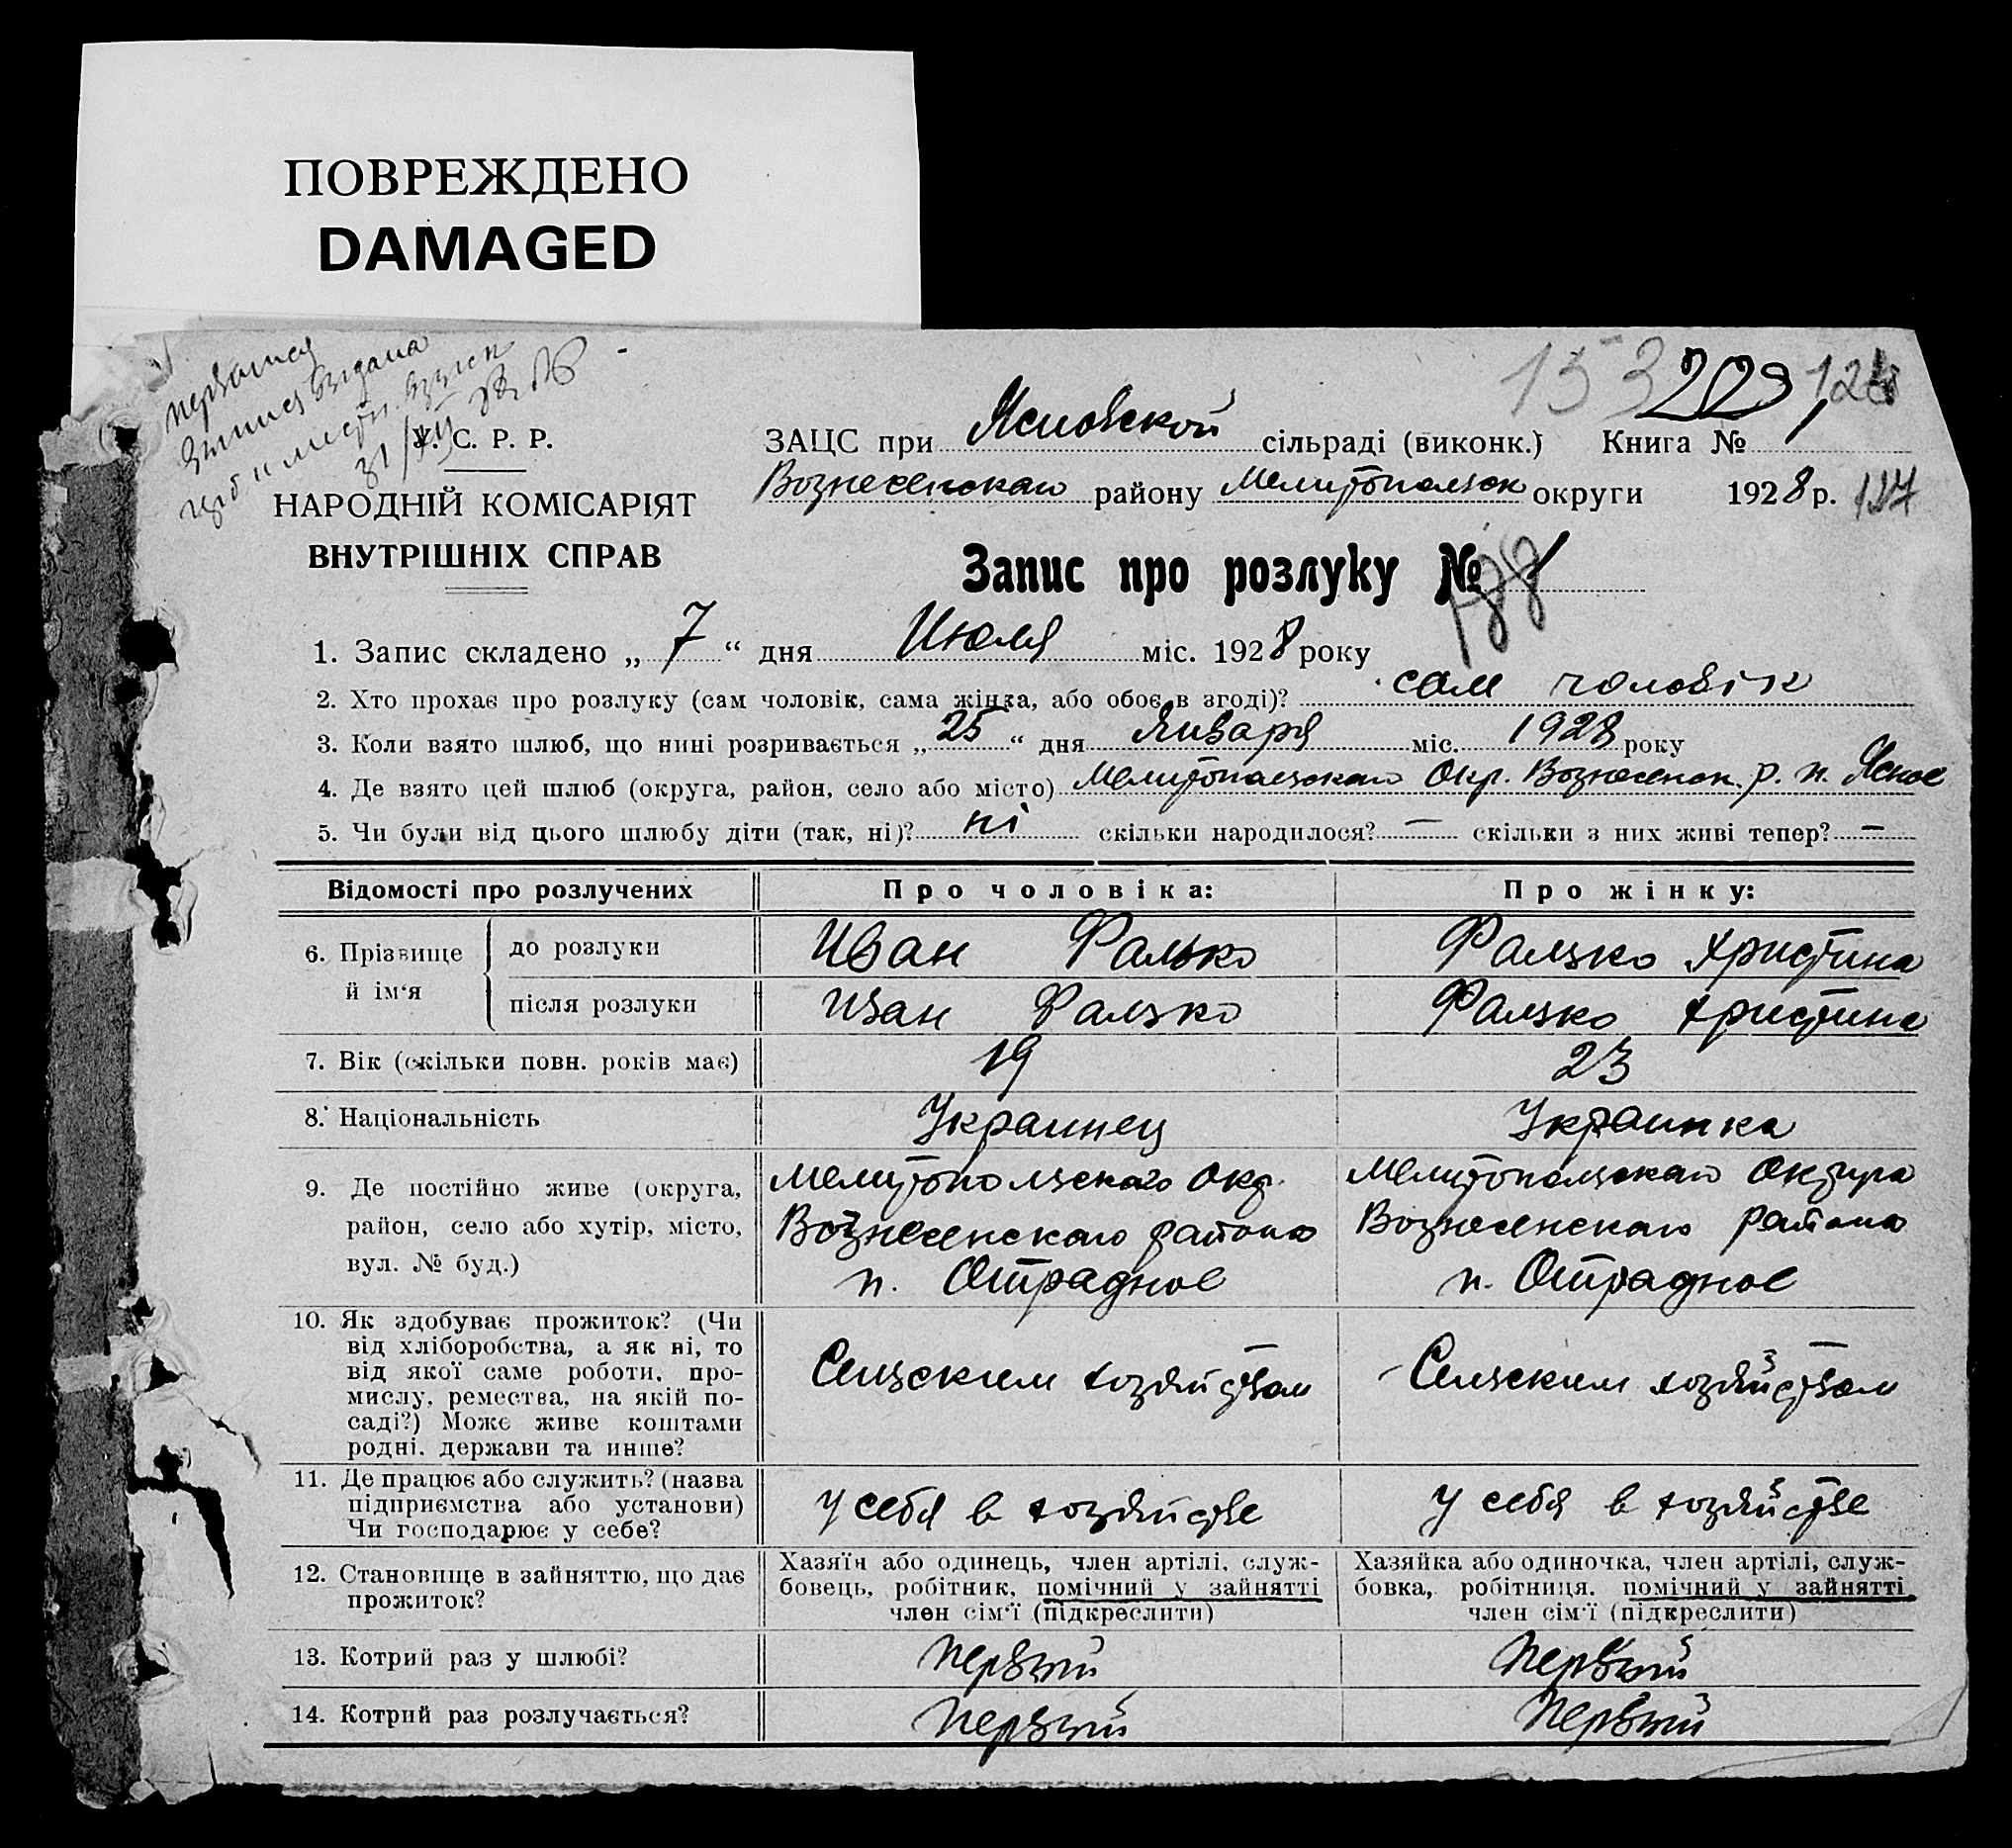 ПОВРЕЖДЕНО
DAMAGED
153 229 128
У. С. Р. Р.
НАРОДНІЙ КОМІСАРІЯТ
ВНУТРІШНІХ СПРАВ
ЗАЦС при Ясновской сільраді (виконк.) Книга №
Вознесенского району Мелитопольск округи 1928 р. 127
Запис про розлуку № 1
188
1. Запис складено „ 7 “ дня Июля міс. 1928 року
2. Хто прохає про розлуку (сам чоловік, сама жінка, або обоє в згоді)? сам чоловік
3. Коли взято шлюб, що нині розривається „ 25 “ дня Января міс. 1928 року
4. Де взято цей шлюб (округа, район, село або місто) Мелитопольского Окр. Вознесенск. р. п. Ясное
5. Чи були від цього шлюбу діти (так, ні)? ні скільки народилося? — скільки з них живі тепер? —
Відомості про розлучених Про чоловіка: Про жінку:
6. Прізвище й ім‘я
до розлуки Иван Фалько Фалько Христина
після розлуки Иван Фалько Фалько Христина
7. Вік (скільки повн. років має) 19 23
8. Національність Украинец Украинка
9. Де постійно живе (округа,
район, село або хутір, місто,
вул. № буд.)
Мелитопольского окр.
Вознесенского района
п. Отрадное
Мелитопольского округа
Вознесенского района
п. Отрадное
10. Як здобуває прожиток? (Чи
від хліборобства, а як ні, то
від якої саме роботи, про-
мислу, ремества, на якій по-
саді?) Може живе коштами
родні, держави та инше?
Сельским хозяйством
Сельским хозяйством
11. Де працює або служить? (назва
підприємства або установи)
Чи господарює у себе?
У себя в хозяйстве
У себя в хозяйстве
12. Становище в зайняттю, що дає
прожиток?
Хазяїн або одинець, член артілі, служ-
бовець, робітник, помічний у зайнятті
член сім‘ї (підкреслити)
Хазяйка або одиночка, член артілі, служ-
бовка, робітниця, помічний у зайнятті
член сім‘ї (підкреслити)
13. Котрий раз у шлюбі? Первый Первый
14. Котрий раз розлучається? Первый Первый